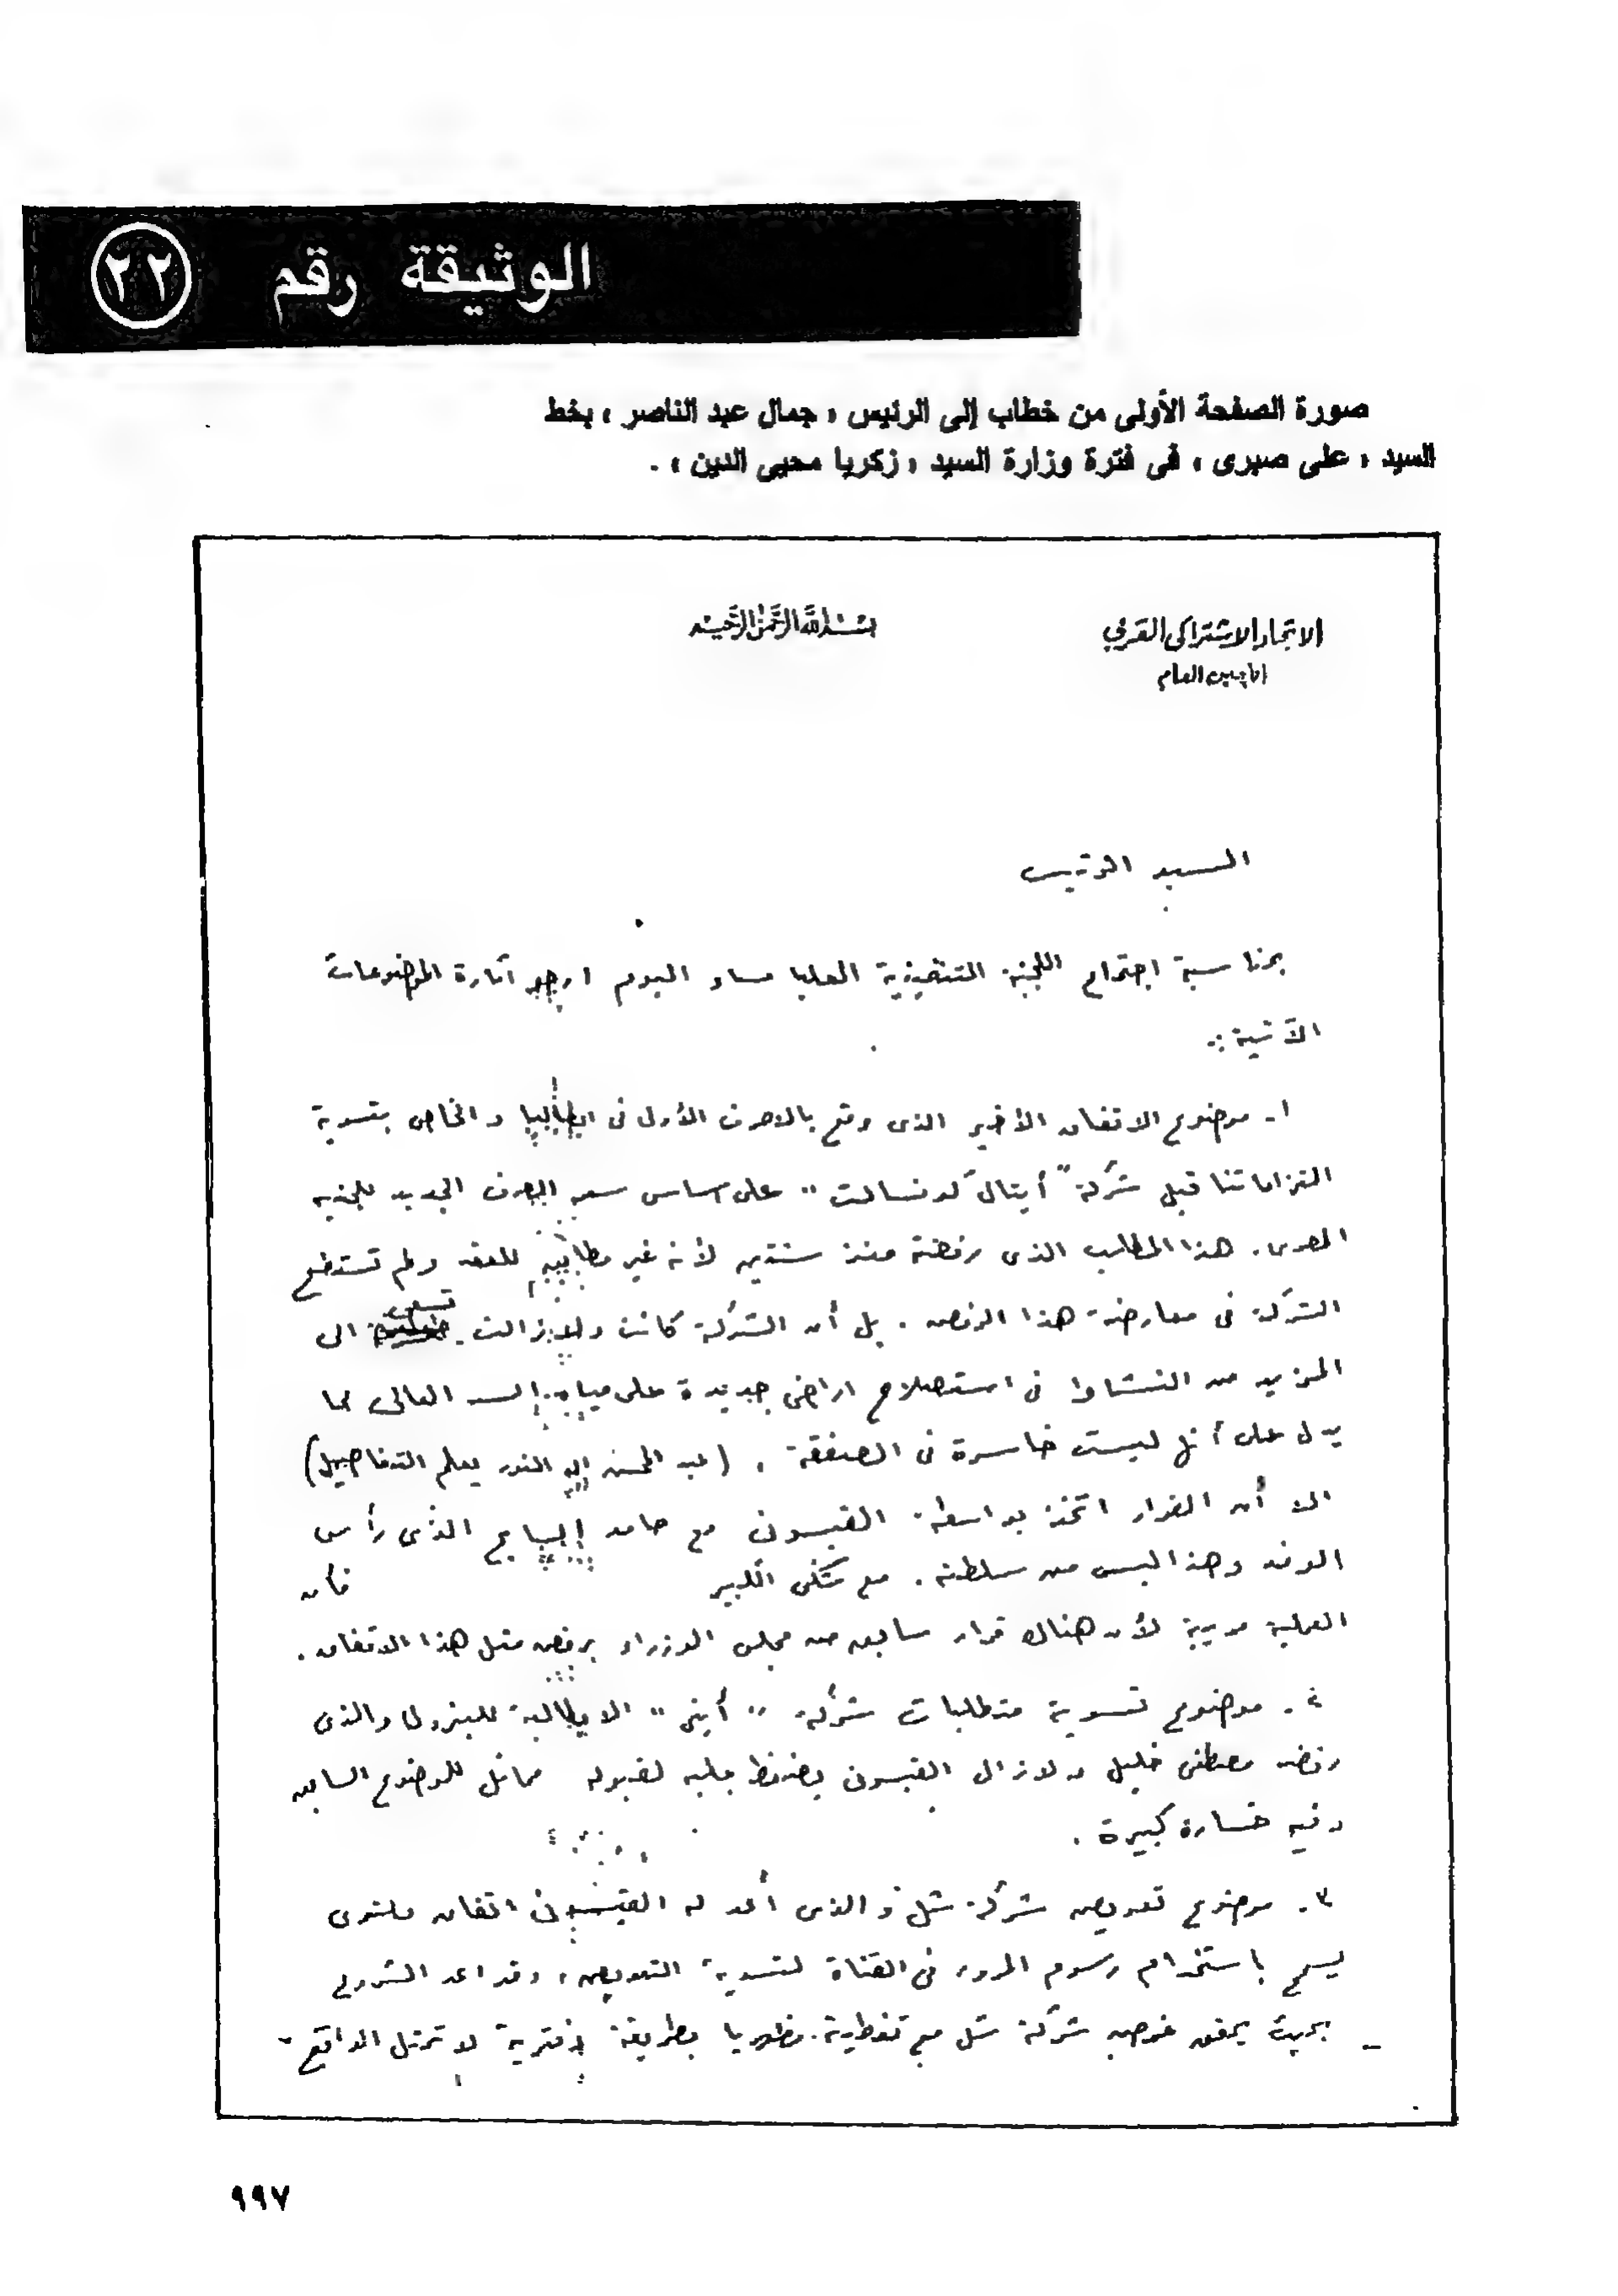 الوثيقة رقم ٢٢
صورة الصفحة الأولى من خطاب إلى الرئيس « جمال عبد الناصر » بخط
السيد « على صبرى » فى فترة وزارة السيد « زكريا محيى الدين » .
بسم الله الرحمن الرحيم
الاتحاد الاشتراكى العربي
الأمين العام
السيد الرئيس
بمناسبة اجتماع اللجنة التنفيذية العليا مساء اليوم ارجو اثارة الموضوعات
الآتية :
١ـ موضوع الاتفاق الأخير الذى وقع بالاحرف الأولى فى ايطاليا والخاص بتسوية
التزاماتنا قبل شركة " أيتال كونسالت " على اساس سعر الصرف الجديد للجنيه
المصرى . هذا المطلب الذى رفضته منذ سنتين لأنه غير مطابق للعقد ولم تستطع
الشركة فى معارضة هذا الرفض . بل أن الشركة كانت ولازالت تسعى الى
المزيد من النشاط فى استصلاح اراضى جديدة على مياه السد العالى مما
يدل على أنها ليست خاسرة فى الصفقة . ( عبد المحسن ابو النور يعلم التفاصيل )
الا أن القرار اتخذ بواسطة القيسونى مع حامد السايح الذى رأس
الوفد وهذا ليس من سلطته . مع شكى الكبير فأن
العملية مريبة لأن هناك قرار سابق من مجلس الوزراء برفض مثل هذا الاتفاق .
٢ـ موضوع تسوية متطلبات شركة " أينى " الايطالية للبترول والذى
رفضه مصطفى خليل ولازال القيسونى يضغط عليه لقبوله مماثل للموضوع السابق
وفيه خسارة كبيرة .
٣ـ موضوع تعويض شركة شل والذى أعد له القيسونى اتفاق ملتوى
يسمح باستخدام رسوم المرور فى القناة لتسوية التعويض ، وقد اعد المشروع
بحيث يحقق غرض شركة شل مع تغطية مظهريا بطريقة دفترية لا تمثل الواقع
٩٩٧